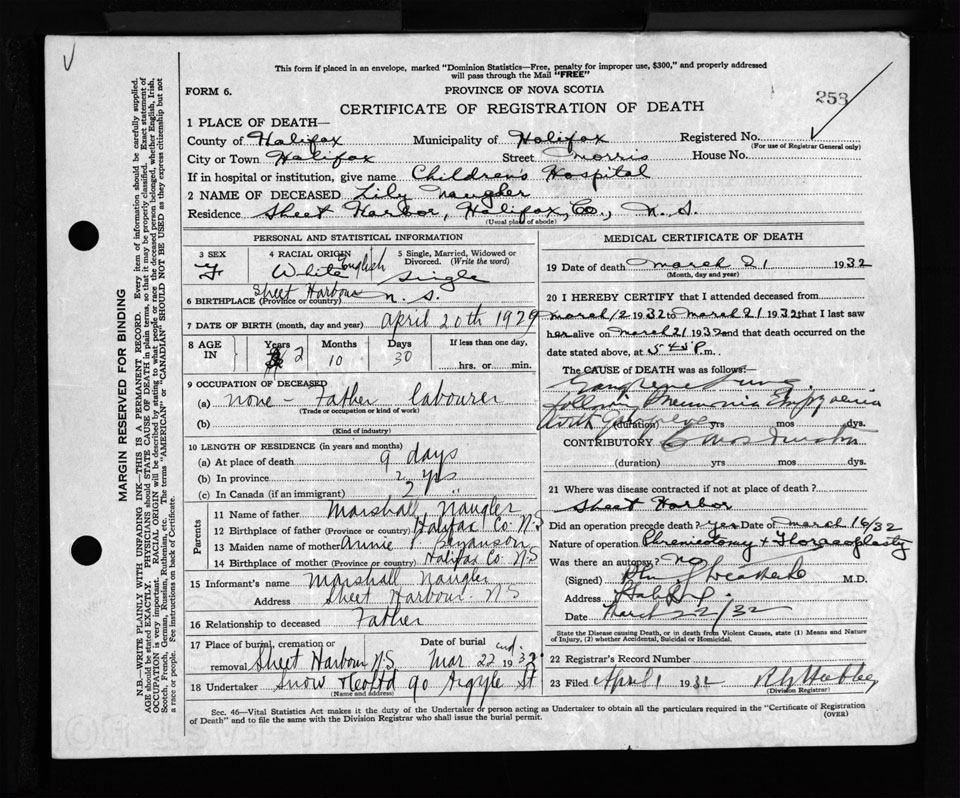 This form if placed in an envelope, marked "Dominion Statistics—Free, penalty for improper use, $300," and properly addressed
will pass through the Mail "FREE"
FORM 6.
PROVINCE OF NOVA SCOTIA
CERTIFICATE OF REGISTRATION OF DEATH
253
1 PLACE OF DEATH—
County of Halifax Municipality of Halifax Registered No.
(For use of Registrar General only)
City or Town Halifax Street Morris House No.
If in hospital or institution, give name Children's Hospital
2 NAME OF DECEASED Lily Naugler
Residence Sheet Harbor, Halifax, Co., N. S.
(Usual place of abode)
MARGIN RESERVED FOR BINDING
N.B.—WRITE PLAINLY WITH UNFADING INK—THIS IS A PERMANENT RECORD. Every item of information should be carefully supplied.
AGE should be stated EXACTLY. PHYSICIANS should STATE CAUSE OF DEATH in plain terms, so that it may be properly classified. Exact statement of
OCCUPATION is very important. RACIAL ORIGIN will be described by stating to what people or race the deceased person belonged, whether English, Irish,
Scotch, French, German, Russian, Ruthenian, etc. The terms "AMERICAN" or "CANADIAN" SHOULD NOT BE USED as they express citizenship but not
a race or people. See instructions on back of Certificate.
PERSONAL AND STATISTICAL INFORMATION
3 SEX
F
4 RACIAL ORIGIN
White English
5 Single, Married, Widowed or
Divorced. (Write the word)
Single
6 BIRTHPLACE (Province or country) Sheet Harbour N. S.
7 DATE OF BIRTH (month, day and year) April 20th 1929
8 AGE IN
Years
2
Months
10
Days
30
If less than one day,
hrs. or min.
9 OCCUPATION OF DECEASED
(a) None - Father labourer
(Trade or occupation or kind of work)
(b)
(Kind of industry)
10 LENGTH OF RESIDENCE (in years and months)
(a) At place of death 9 days
(b) In province 2 yrs
(c) In Canada (if an immigrant) 2
Parents
11 Name of father Marshall Naugler
12 Birthplace of father (Province or country) Halifax Co N.S
13 Maiden name of mother Annie
14 Birthplace of mother (Province or country) Halifax Co N.S
15 Informant's name Marshall Naugler
Address Sheet Harbour. N.S
16 Relationship to deceased Father
17 Place of burial, cremation or
removal Sheet Harbour N.S.
Date of burial
Mar 22nd 1932
18 Undertaker Snow & Co Ltd 90 Argyle St
(Name and address)
MEDICAL CERTIFICATE OF DEATH
19 Date of death March 21 1932
(Month, day and year)
20 I HEREBY CERTIFY that I attended deceased from
March 12 1932 to March 21 1932 that I last saw
her alive on March 21 1932 and that death occurred on the
date stated above, at 5 45 P.m.
The CAUSE of DEATH was as follows:—
Gangrene Lung
following Pneumonia Empyema
with
(duration) yrs mos dys.
CONTRIBUTORY
(duration) yrs mos dys.
21 Where was disease contracted if not at place of death?
Sheet Harbor
Did an operation precede death? yes Date of March 16/32
Nature of operation Phrenicotomy & Thoracoplasty
Was there an autopsy? No
(Signed) M.D.
Address
Date March 22/32
State the Disease causing Death, or in deaths from Violent Causes, state (1) Means and Nature
of Injury, (2) whether Accidental, Suicidal or Homicidal.
22 Registrar's Record Number
23 Filed April 1 1932
(Division Registrar)
Sec. 46—Vital Statistics Act makes it the duty of the Undertaker or person acting as Undertaker to obtain all the particulars required in the "Certificate of Registration
of Death" and to file the same with the Division Registrar who shall issue the burial permit.
(OVER)